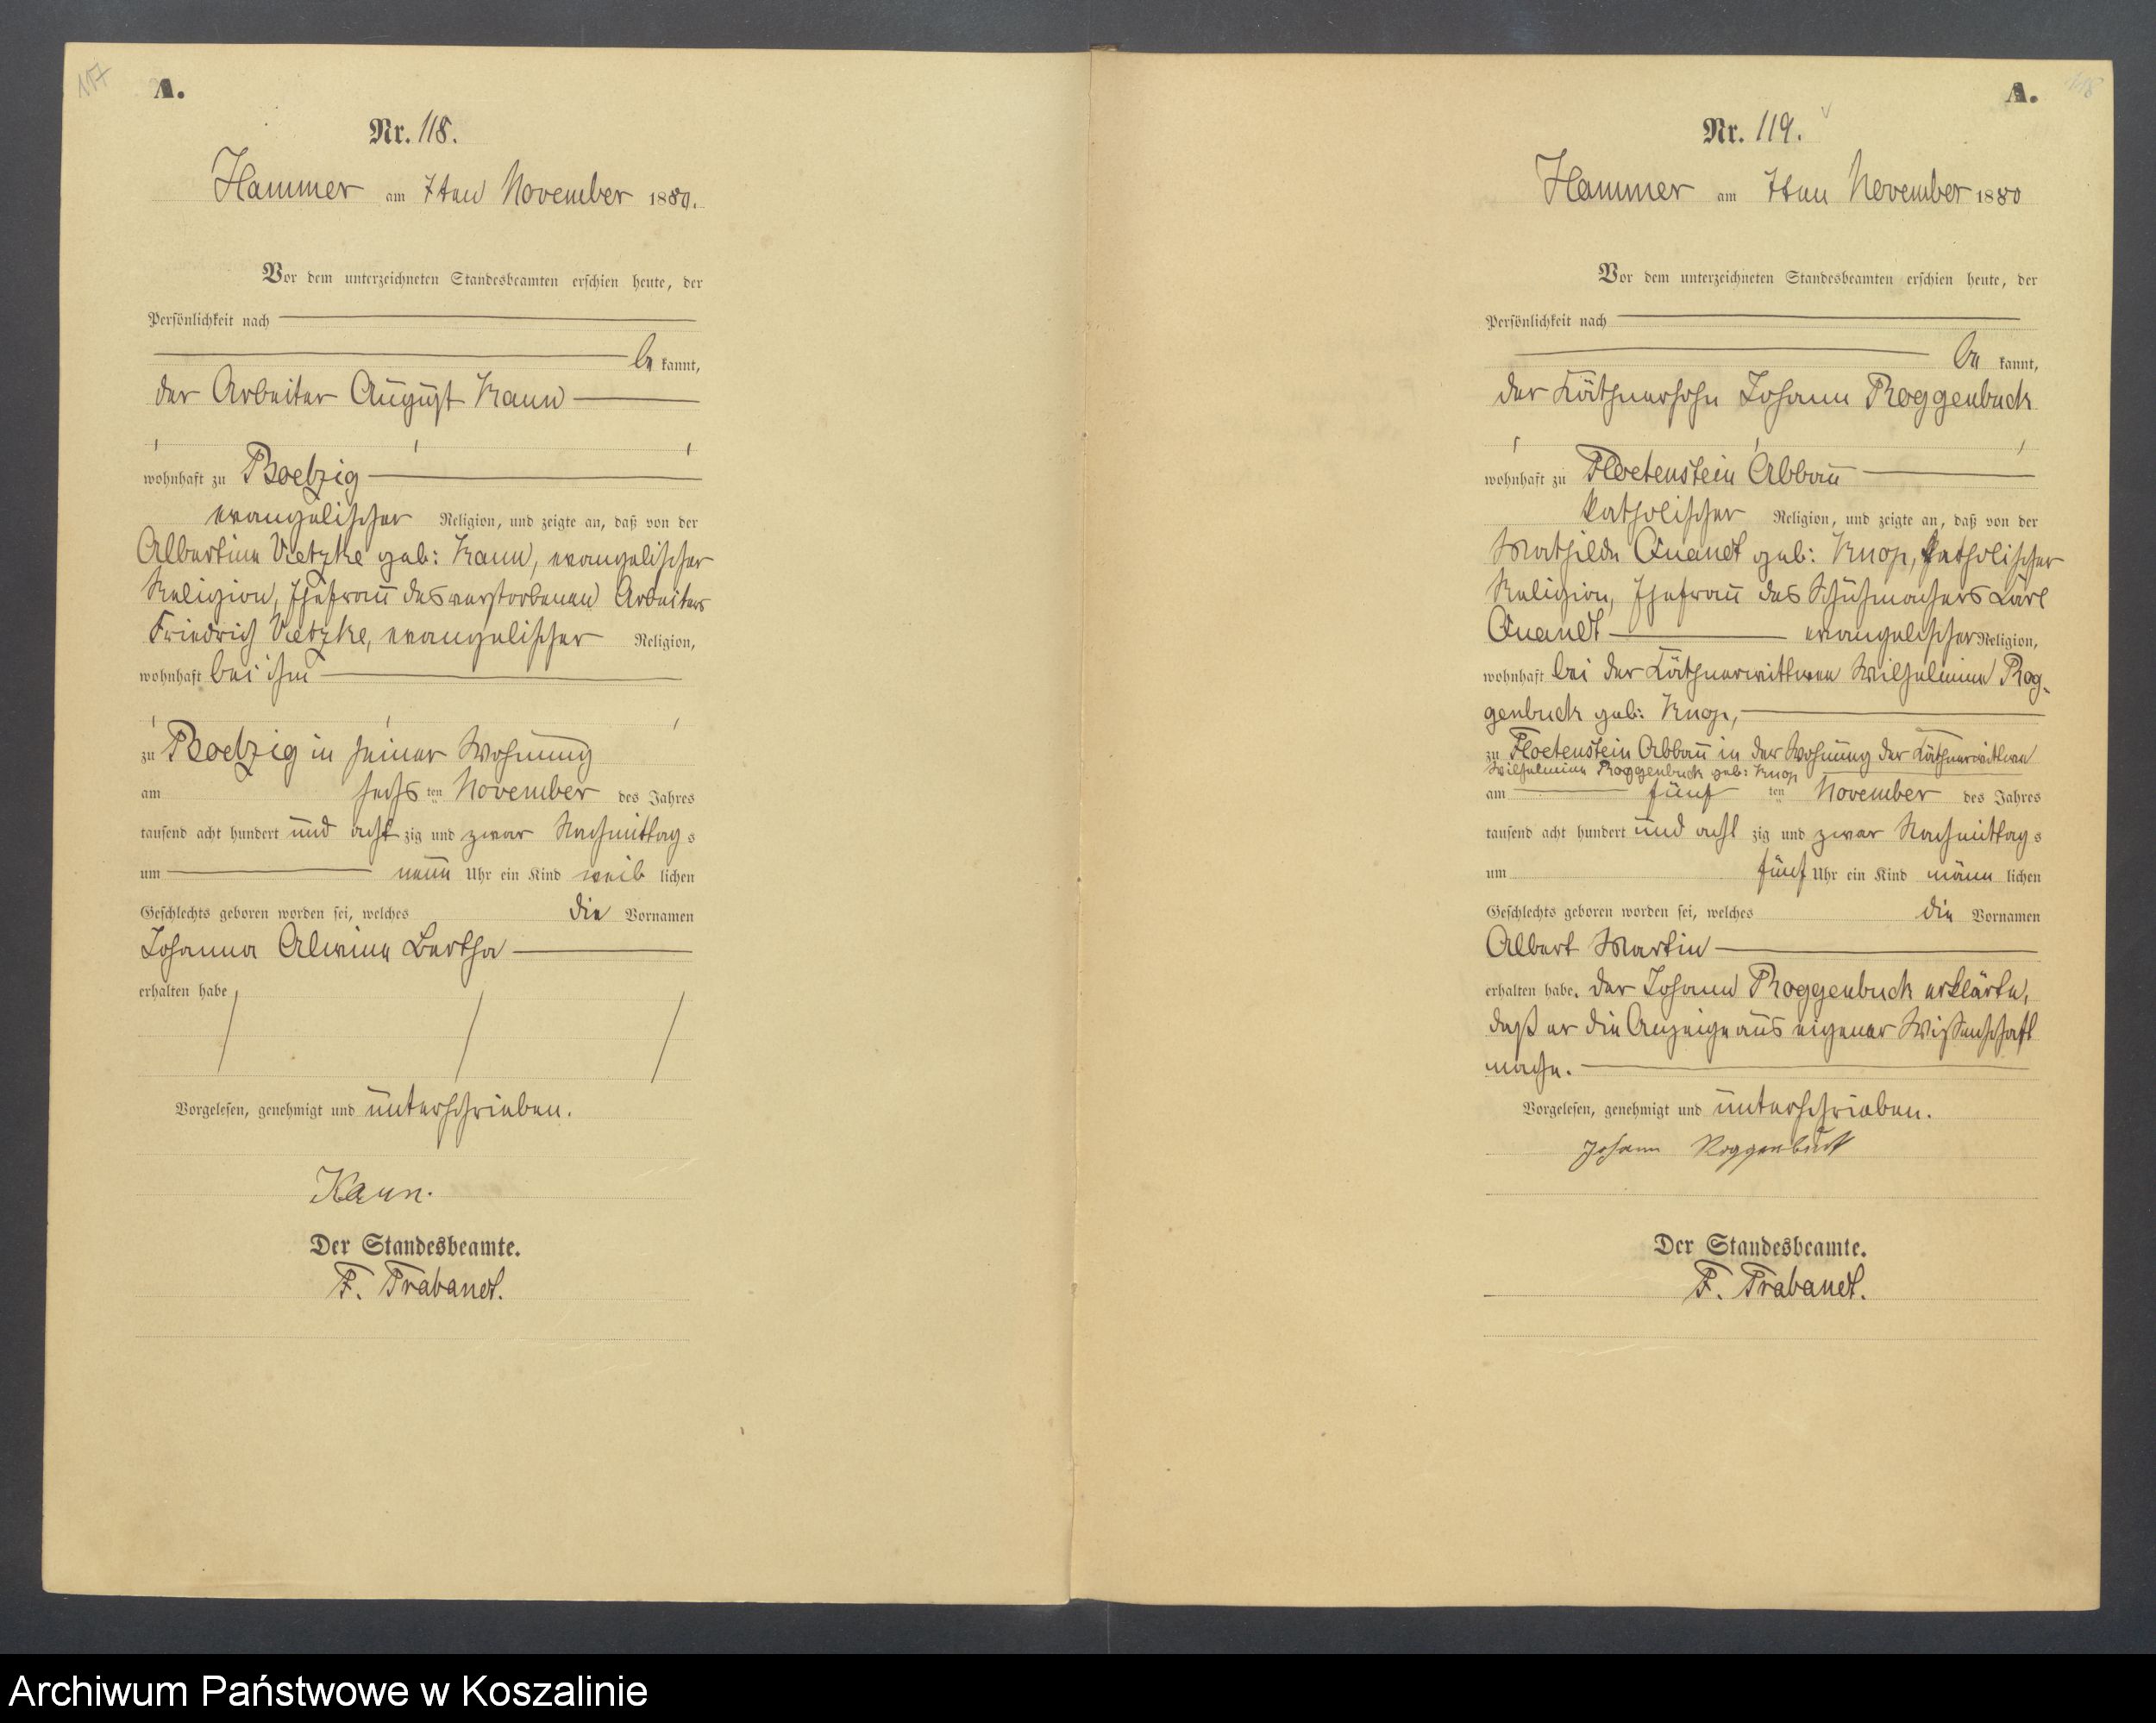 117
A.
Nr. 118.
Hammer am 7ten November 1880.
Vor dem unterzeichneten Standesbeamten erschien heute, der
Persönlichkeit nach
be kannt,
der Arbeiter August Kann
wohnhaft zu Boelzig
evangelischer Religion, und zeigte an, daß von der
Albertine Vietzke geb: Kann, evangelischer
Religion, Ehefrau des verstorbenen Arbeiters
Friedrich Vietzke, evangelischer Religion,
wohnhaft bei ihm
zu Boelzig in seiner Wohnung
am sechs ten November des Jahres
tausend acht hundert und acht zig und zwar Nachmittag s
um neun Uhr ein Kind weib lichen
Geschlechts geboren worden sei, welches die Vornamen
Johanna Alwine Bertha
erhalten habe
Vorgelesen, genehmigt und unterschrieben.
Kann.
Der Standesbeamte.
F. Trabandt.
118
A.
Nr. 119.
Hammer am 7ten November 1880
Vor dem unterzeichneten Standesbeamten erschien heute, der
Persönlichkeit nach
be kannt,
der Käthnersohn Johann Roggenbuck
wohnhaft zu Floetenstein Abbau
katholischer Religion, und zeigte an, daß von der
Mathilde Quandt geb: Knop, katholischer
Religion, Ehefrau des Schuhmachers Carl
Quandt evangelischer Religion,
wohnhaft bei der Käthnerwittwe Wilhelmine Rog-
genbuck geb: Knop,
zu Floetenstein Abbau in der Wohnung der Käthnerwittwe
Wilhelmine Roggenbuck geb: Knop
am fünf ten November des Jahres
tausend acht hundert und acht zig und zwar Nachmittag s
um fünf Uhr ein Kind männ lichen
Geschlechts geboren worden sei, welches die Vornamen
Albert Martin
erhalten habe. Der Johann Roggenbuck erklärte,
daß er die Anzeige aus eigener Wissenschaft
mache.
Vorgelesen, genehmigt und unterschrieben.
Johann Roggenbuck
Der Standesbeamte.
F. Trabandt.
Archiwum Państwowe w Koszalinie